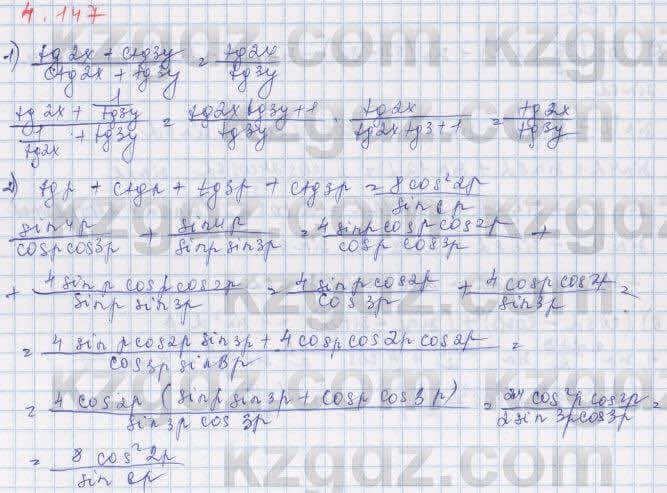 4.147
1) (tg2x + ctg3y)/(ctg2x + tg3y) = tg2x/tg3y
(tg2x + 1/tg3y)/(1/tg2x + tg3y) = (tg2x tg3y + 1)/tg3y · tg2x/(tg2x tg3 + 1) = tg2x/tg3y
2) tgp + ctgp + tg3p + ctg3p = 8cos²2p/sin6p
sin4p/(cosp cos3p) + sin4p/(sinp sin3p) = 4sinp cosp cos2p/(cosp cos3p) +
+ 4sinp cosp cos2p/(sinp sin3p) = 4sinp cos2p/cos3p + 4cosp cos2p/sin3p =
= (4sinp cos2p sin3p + 4cosp cos2p cos2p)/(cos3p sin3p) =
= 4cos2p (sinp sin3p + cosp cos3p)/(sin3p cos3p) = cos²p cos2p/(2sin3p cos3p) =
= 8cos²2p/sin6p
kzgdz.com